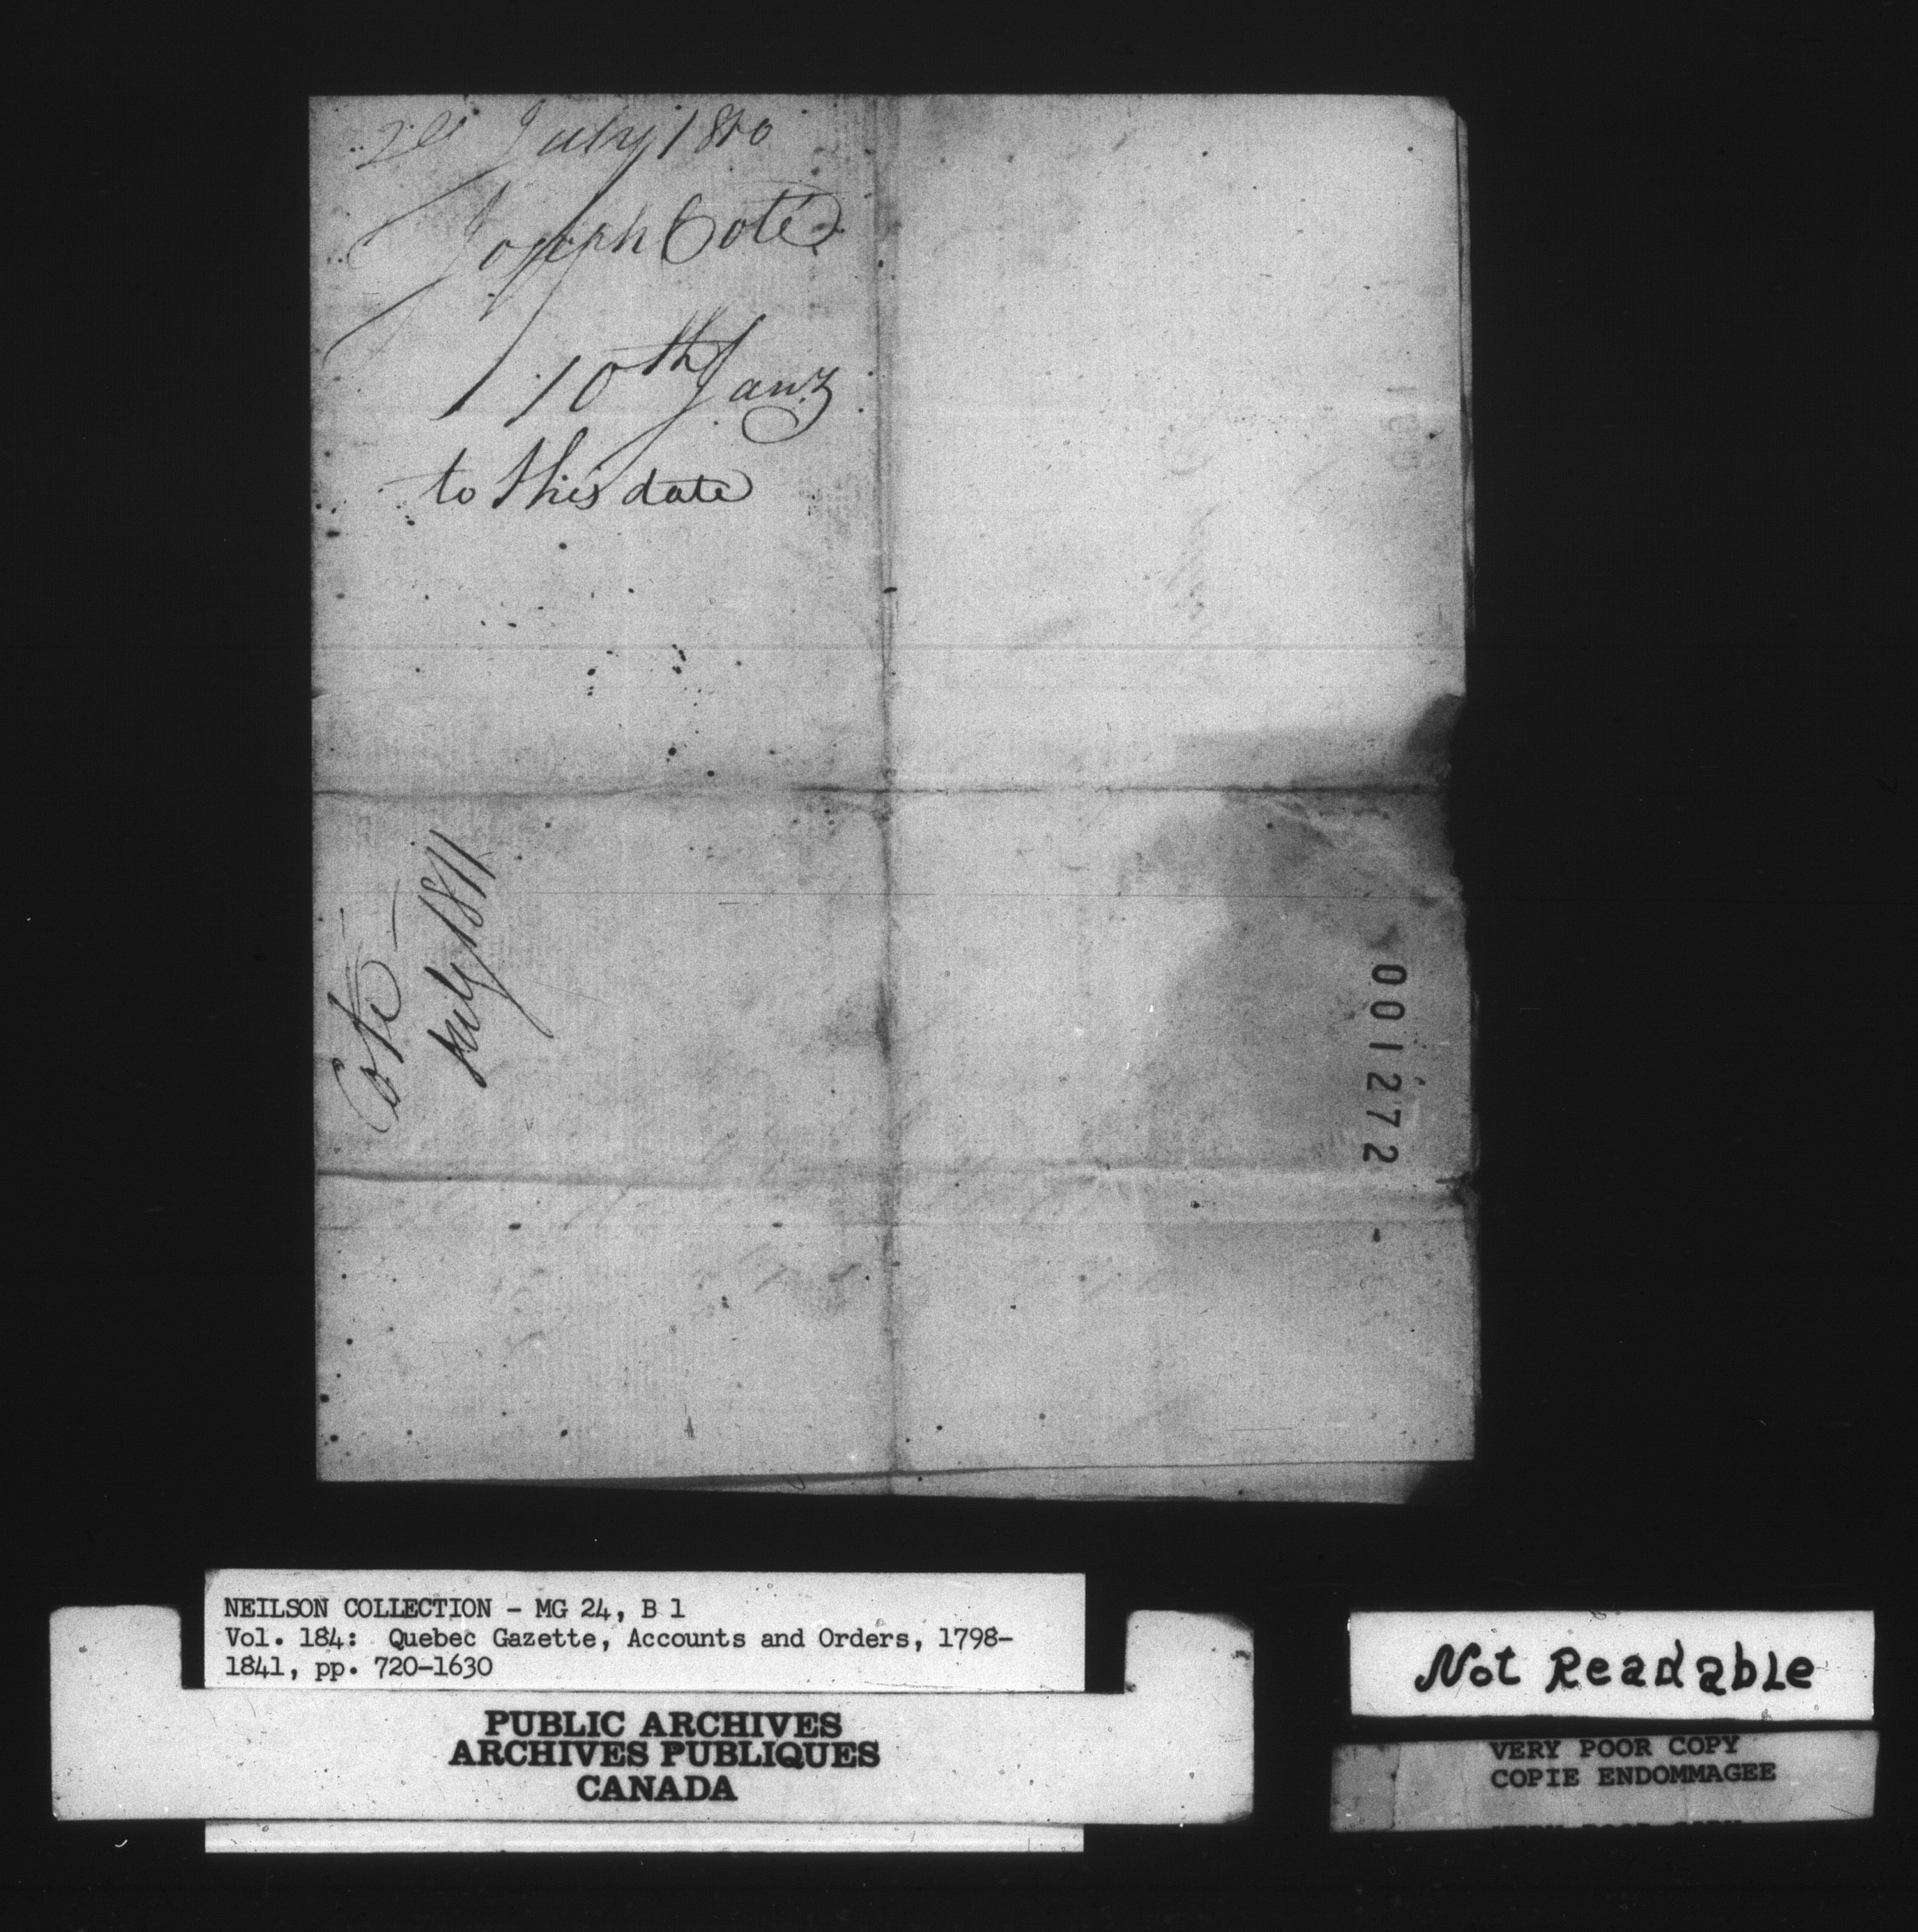 July 1810
Joseph Coté
10th Jany
to this date
Coté
July 1811
001272
NEILSON COLLECTION - MG 24, B 1
Vol. 184: Quebec Gazette, Accounts and Orders, 1798-
1841, pp. 720-1630
PUBLIC ARCHIVES
ARCHIVES PUBLIQUES
CANADA
Not Readable
VERY POOR COPY
COPIE ENDOMMAGEE